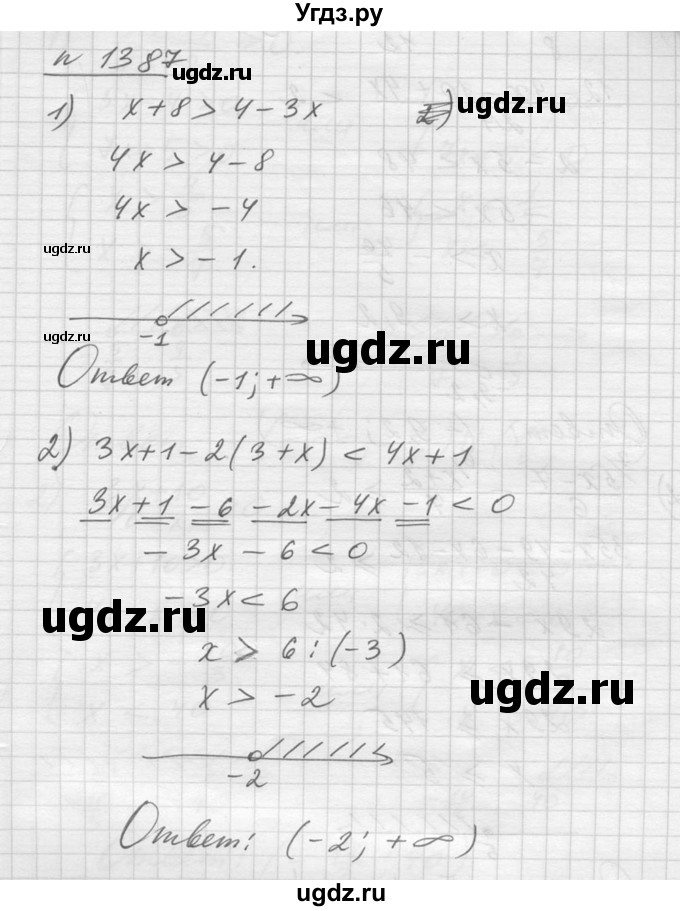 Угдз.ру
n 1387
ugdz.ru
1) x+8 > 4-3x 2)
ugdz.ru
4x > 4-8
4x > -4
ugdz.ru
x > -1.
-1
ugdz.ru
Ответ (-1; +∞)
2) 3x+1-2(3+x) < 4x+1
3x+1-6-2x-4x-1 < 0
-3x-6 < 0
-3x < 6
ugdz.ru
x > 6:(-3)
x > -2
ugdz.ru
-2
Ответ: (-2; +∞)
ugdz.ru